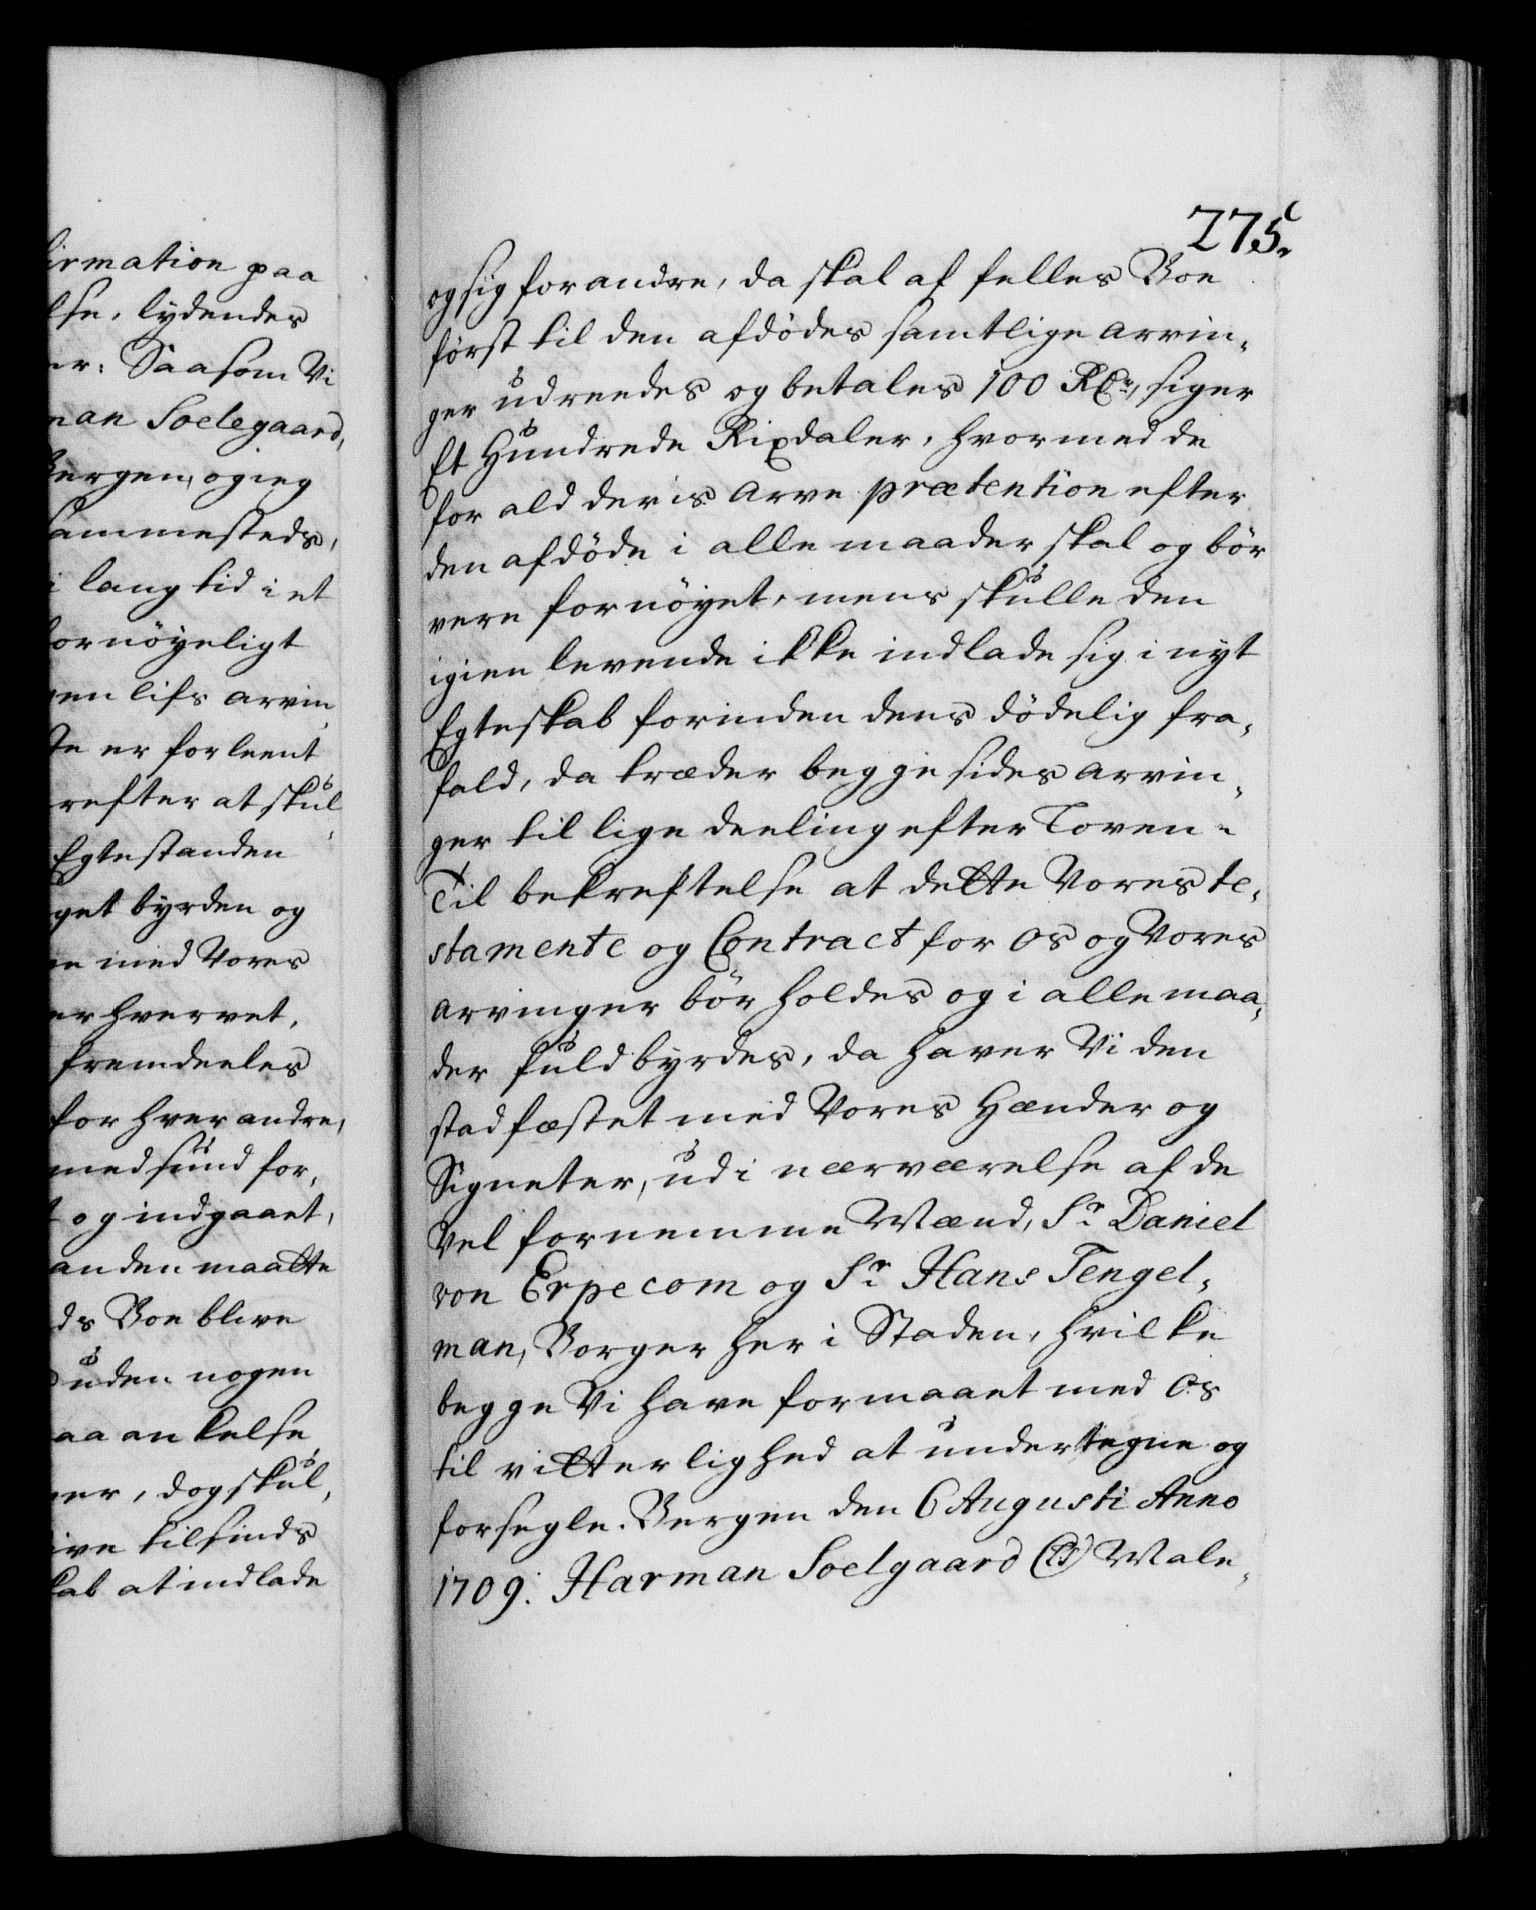 irmation paa
lse, lydendes
er: Saasom Vi
man Soelegaard,
Bergen, og ieg
sammesteds,
i lang tid i et
fornöyeligt
gen lifs arvin
te er forleent
refter at skul
Egtestanden
get byrden og
ne med Vores
erhvervet,
fremdeeles
for hverandre,
med sund for,
t og indgaaet,
anden maatte
ds Boe blive
uden nogen
aa ankelse
ner, dog skul,
ive tilsinds
kab at indlade
275.
og sig forandre, da skal af felles Boe
først til den afdödes samtlige arvin,
ger udreedes og betales 100 Rdr, siger
Et Hundrede Rixdaler, hvormed de
for ald deris Arve prætention efter
den afdöde i alle maader skal og bör
vere fornöyet, mens skulle den
igien levende ikke indlade sig i nyt
Egteskab forinden dens dödelig fra,
fald, da træder begge sides arvin,
ger til lige deeling efter Loven.
Til bekreftelse at dette Vores te,
stamente og Contract for os og Vores
arvinger bör holdes og i alle maa,
der fuldbyrdes, da haver Vi den
stadfæstet med Vores Hænder og
Signeter, udi nærværelse af de
Vel fornemme Mænd, Sr. Daniel
von Erpecom og Sr. Hans Tengel,
man, Borger her i Staden, hvilke
begge Vi have formaaet med Os
til vitterlighed at undertegne og
forsegle. Bergen den 6 Augusti Anno
1709. Harman Soelgaard (LS) Male,